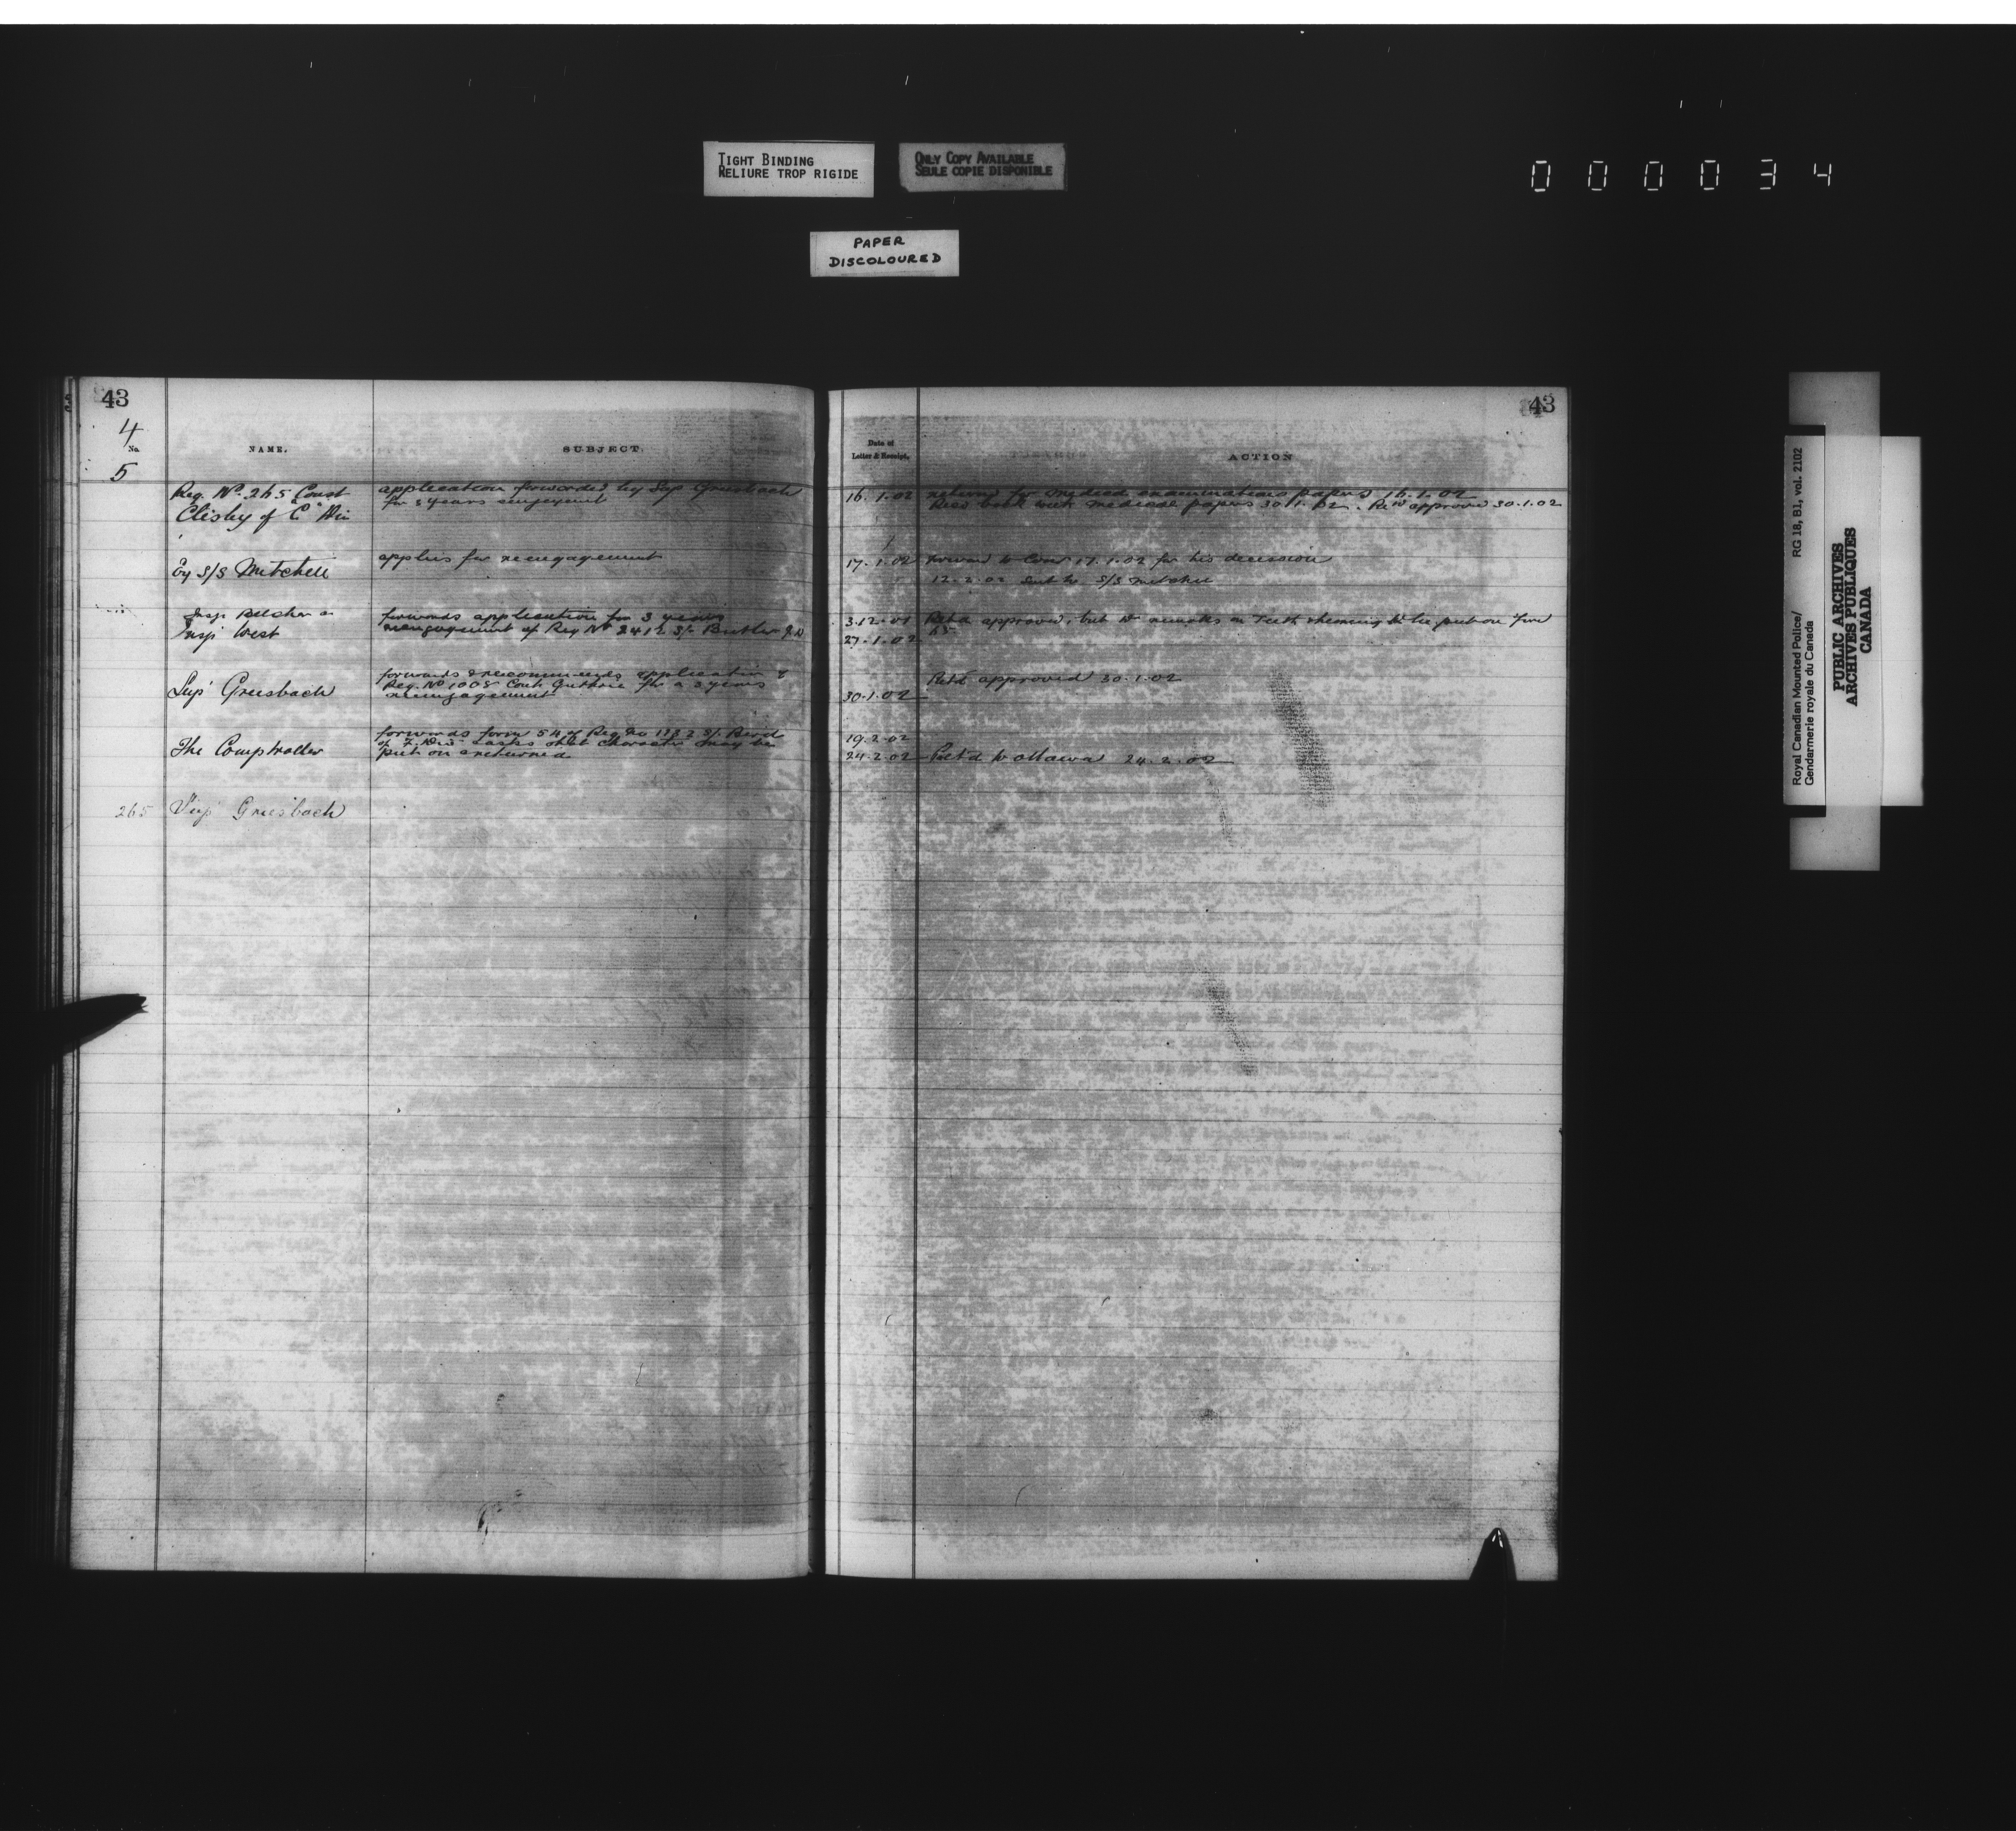 TIGHT BINDING
RELIURE TROP RIGIDE
ONLY COPY AVAILABLE
SEULE COPIE DISPONIBLE
000034
PAPER
DISCOLOURED
43
4
No.
5
NAME.
SUBJECT.
Reg. No. 265 Const
Clisby of "C" Div
application forwarded by Sup Griesbach
for 3 years engagement
S/S Mitchell
applies for reengagement
Insp Belcher
Insp West
forwards application for 3 years
reengagement of Reg No 2412 St Butler
Supt Griesbach
forwards & recommends application of
Reg. No 1005 Const Guthrie for a 3 years
reengagement
The Comptroller
forwards form 54 of Reg No St. Bird
of F. Div & asks that character may be
put on & returned
265 Sup Griesbach
43
Date of
Letter & Receipt.
ACTION
16.1.02 return for medical examination papers 16.1.02
Recd back with medical papers 30.1.02. Retd approved 30.1.02
17.1.02 Forward to Com 17.1.02 for his decision
12.2.02 Sent to S/S Mitchell
3.12.01 Retd approved, but remarks on Teeth
27.1.02
30.1.02 Retd approved 30.1.02
19.2.02
24.2.02 Retd to Ottawa 24.2.02
Royal Canadian Mounted Police/
Gendarmerie royale du Canada
RG 18, B1, vol. 2102
PUBLIC ARCHIVES
ARCHIVES PUBLIQUES
CANADA